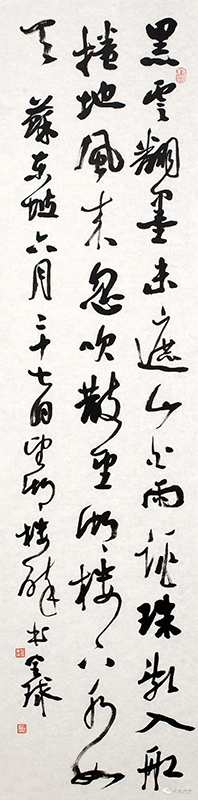 黑雲翻墨未遮山白雨跳珠亂入船
捲地風来忽吹散望湖樓下水如
天 蘇東坡六月二十七日望湖樓醉书